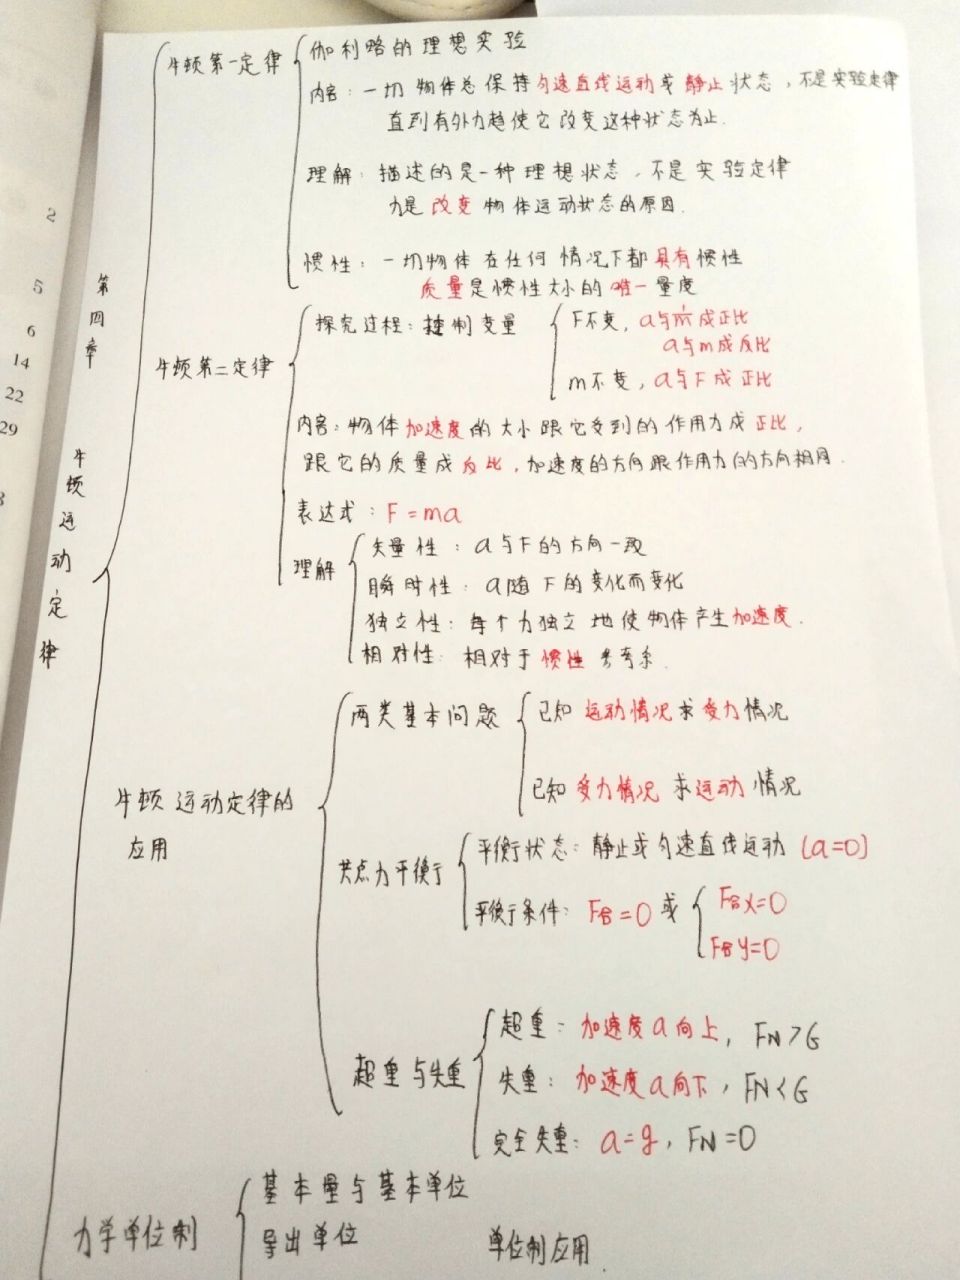 2
5
6
14
22
29
第四章
牛顿运动定律
牛顿第一定律
伽利略的理想实验
内容：一切物体总保持匀速直线运动或静止状态，不是实验定律
直到有外力趋使它改变这种状态为止.
理解：描述的是一种理想状态，不是实验定律
力是改变物体运动状态的原因.
惯性：一切物体在任何情况下都具有惯性
质量是惯性大小的唯一量度
牛顿第二定律
探究过程：控制变量
F不变，a与 1/m 成正比
a与m成反比
m不变，a与F成正比
内容：物体加速度的大小跟它受到的作用力成正比，
跟它的质量成反比，加速度的方向跟作用力的方向相同.
表达式：F=ma
理解
矢量性：a与F的方向一致
瞬时性：a随F的变化而变化
独立性：每个力独立地使物体产生加速度.
相对性：相对于惯性参考系.
牛顿运动定律的
应用
两类基本问题
已知运动情况求受力情况
已知受力情况求运动情况
共点力平衡
平衡状态：静止或匀速直线运动(a=0)
平衡条件：F合=0或
F合x=0
F合y=0
超重与失重
超重：加速度a向上，FN>G
失重：加速度a向下，FN<G
完全失重：a=g，FN=0
力学单位制
基本量与基本单位
导出单位
单位制应用